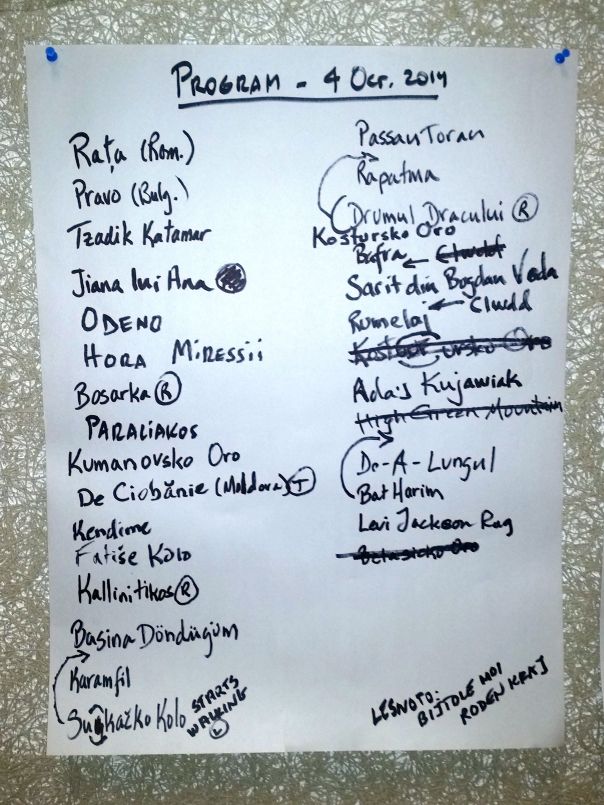 PROGRAM - 4 OCT. 2014
Rața (Rom.)
Pravo (Bulg.)
Tzadik Katamar
Jiana lui Ana
ODENO
HORA MIRESSII
Bosarka R
PARALIAKOS
Kumanovsko Oro
De Ciobănie (Moldova) T
Kendime
Fatiše Kolo
Kallinitikos R
Başina Döndügüm
Karamfil
Sučkažko Kolo STARTS
WALKING
L
PassauToran
Rapatma
Drumul Dracului R
Kostursko Oro
Bafra
Sarit din Bogdan Voda
Rumelaj Clwdd
Ada's Kujawiak
High Green Mountain
De-A-Lungul
Bat Harim
Levi Jackson Rag
Belasicko Oro
LESNOTO:
BIJTOLE MOJ
RODEN KRAJ